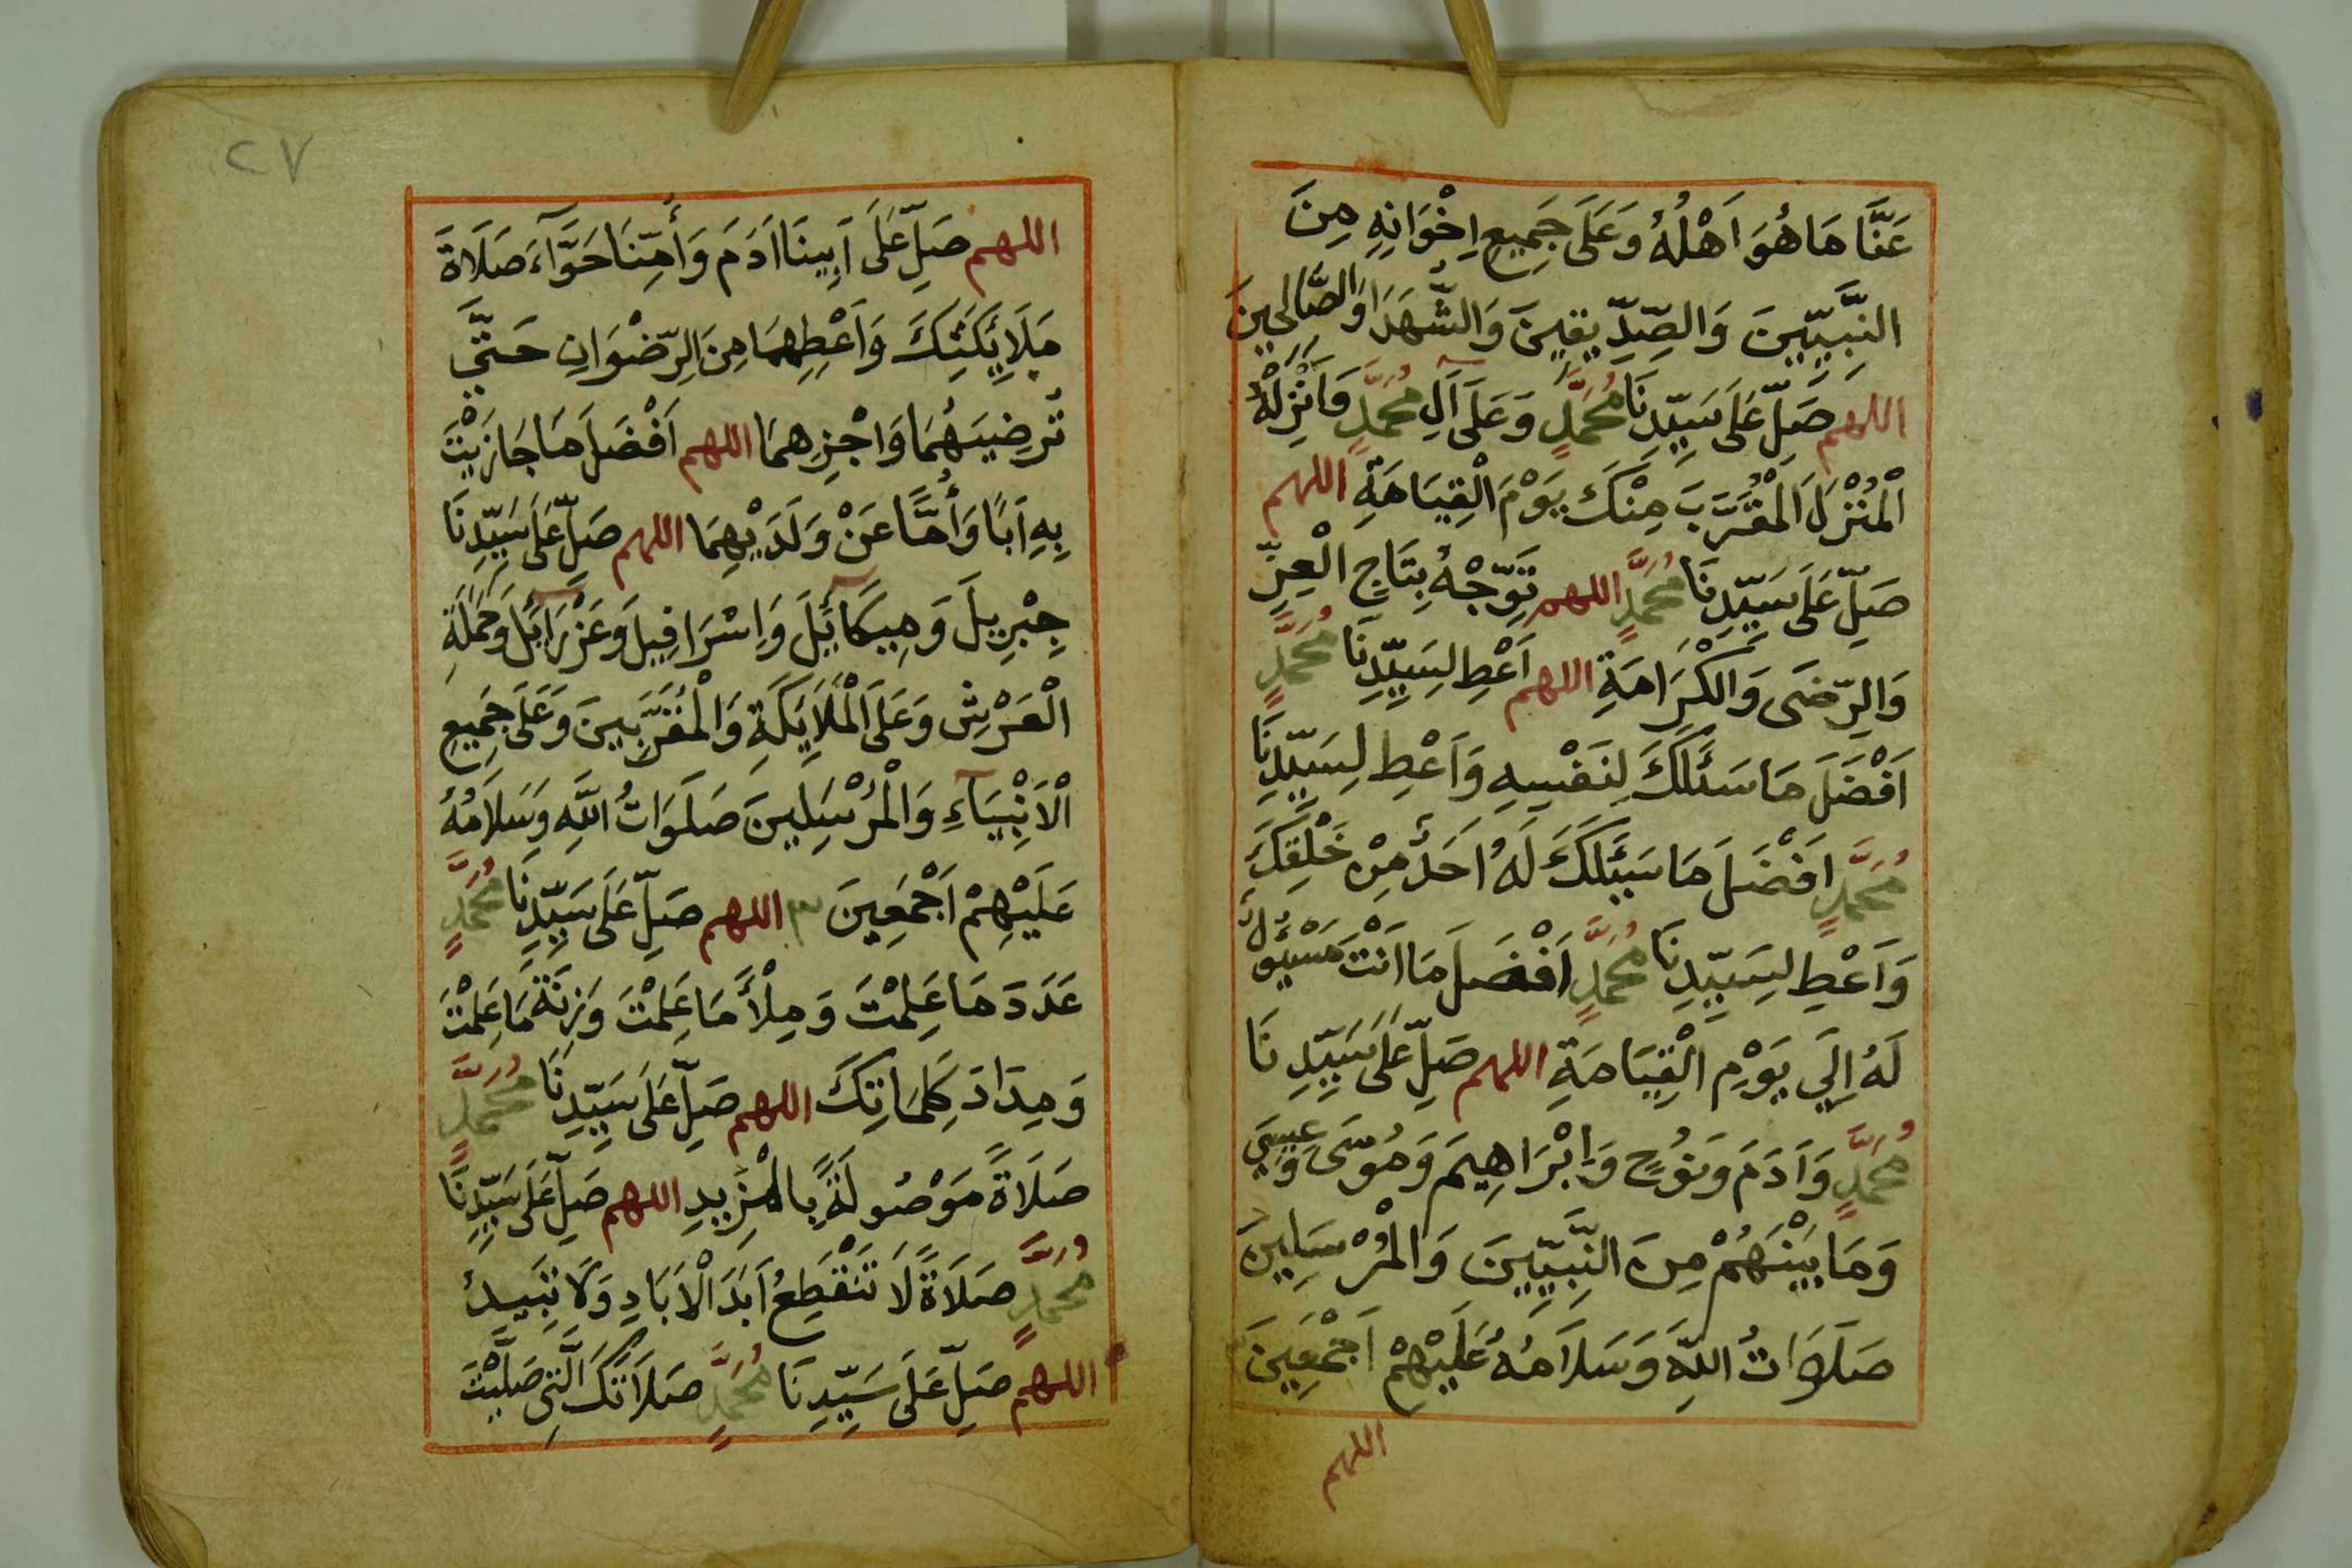 عَنَّا مَا هُوَ اَهْلُهُ وَعَلَى جَمِيعِ اِخْوَانِهِ مِنَ
النَّبِيِّينَ وَالصِّدِّيقِينَ وَالشُّهَدَا وَالصَّالِحِينَ
اللهم صَلِّ عَلَى سَيِّدِنَا مُحَمَّدٍ وَعَلَى آلِ مُحَمَّدٍ وَاَنْزِلْهُ
الْمُنْزَلَ الْمُقَرَّبَ مِنْكَ يَوْمَ الْقِيَامَةِ اللهم
صَلِّ عَلَى سَيِّدِنَا مُحَمَّدٍ اللهم تَوِّجْهُ بِتَاجِ الْعِزِّ
وَالرِّضَى وَالْكَرَامَةِ اللهم اَعْطِ لِسَيِّدِنَا مُحَمَّدٍ
اَفْضَلَ مَا سَئَلَكَ لِنَفْسِهِ وَاَعْطِ لِسَيِّدِنَا
مُحَمَّدٍ اَفْضَلَ مَا سَئَلَكَ لَهُ اَحَدٌ مِنْ خَلْقِكَ
وَاَعْطِ لِسَيِّدِنَا مُحَمَّدٍ اَفْضَلَ مَا اَنْتَ مَسْئُولٌ
لَهُ اِلَي يَوْمِ الْقِيَامَةِ اللهم صَلِّ عَلَى سَيِّدِنَا
مُحَمَّدٍ وَاَدَمَ وَنُوحٍ وَاِبْرَاهِيمَ وَمُوسَى وَعِيسَي
وَمَا بَيْنَهُمْ مِنَ النَّبِيِّينَ وَالْمُرْسَلِينَ
صَلَوَاتُ اللّٰهِ وَسَلَامُهُ عَلَيْهِمْ اَجْمَعِينَ
اللهم
٢٧
اللهم صَلِّ عَلَى اَبِينَا اَدَمَ وَأُمِّنَا حَوَّآءَ صَلَاةَ
مَلَايِكَتِكَ وَاَعْطِهِمَا مِنَ الرِّضْوَانِ حَتَّي
تُرْضِيَهُمَا وَاجْزِهِمَا اللهم اَفْضَلَ مَا جَازَيْتَ
بِهِ اَبًا وَأُمًّا عَنْ وَلَدَيْهِمَا اللهم صَلِّ عَلَى سَيِّدِنَا
جِبْرِيلَ وَمِيكَآئِيلَ وَاِسْرَافِيلَ وَعَزْرَآئِيلَ وَحَمَلَةِ
الْعَرْشِ وَعَلَى الْمَلَايِكَةِ وَالْمُقَرَّبِينَ وَعَلَى جَمِيعِ
الْاَنْبِيَآءِ وَالْمُرْسَلِينَ صَلَوَاتُ اللّٰهِ وَسَلَامُهُ
عَلَيْهِمْ اَجْمَعِينَ ٣ اللهم صَلِّ عَلَى سَيِّدِنَا مُحَمَّدٍ
عَدَدَ مَا عَلِمْتَ وَمِلْأَ مَا عَلِمْتَ وَزِنَةَ مَا عَلِمْتَ
وَمِدَادَ كَلِمَاتِكَ اللهم صَلِّ عَلَى سَيِّدِنَا مُحَمَّدٍ
صَلَاةً مَوْصُولَةً بِالْمَزِيدِ اللهم صَلِّ عَلَى سَيِّدِنَا
مُحَمَّدٍ صَلَاةً لَا تَنْقَطِعُ اَبَدَ الْاَبَادِ وَلَا تَبِيدُ
اللهم صَلِّ عَلَى سَيِّدِنَا مُحَمَّدٍ صَلَاتَكَ الَّتِي صَلَّيْتَ